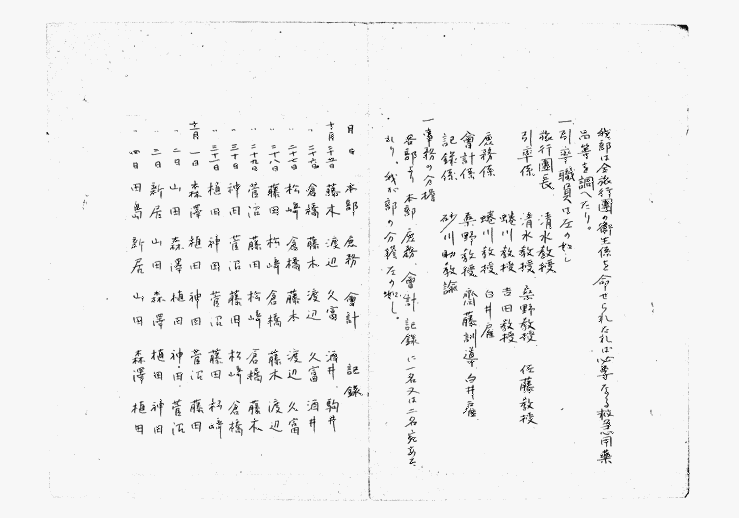 我部は全旅行團の衛生係を命せられたれは必要なる救急用藥
品等を調へたり。
一引率職員は左の如し
旅行團長　清水教授
引率係　清水教授　桑野教授　佐藤教授
蜷川教授　吉田教授
庶務係　蜷川教授　白井雇
會計係　桑野教授　齋藤訓導　白井雇
記録係　砂川助教諭
一事務の分擔
各部より本部　庶務　會計　記録に一名又は二名宛あた
れり。我が部の分擔左の如し。
月日　本部　庶務　會計　記録
十月二十五日　藤木　渡辺　久富　酒井　駒井
〃二十六日　倉橋　藤木　渡辺　久富　酒井
〃二十七日　松崎　倉橋　藤木　渡辺　久富
〃二十八日　藤田　松崎　倉橋　藤木　渡辺
〃二十九日　菅沼　藤田　松崎　倉橋　藤木
〃三十日　神田　菅沼　藤田　松崎　倉橋
〃三十一日　植田　神田　菅沼　藤田　松崎
十一月一日　森澤　植田　神田　菅沼　藤田
〃二日　山田　森澤　植田　神田　菅沼
〃三日　新居　山田　森澤　植田　神田
〃四日　田島　新居　山田　森澤　植田